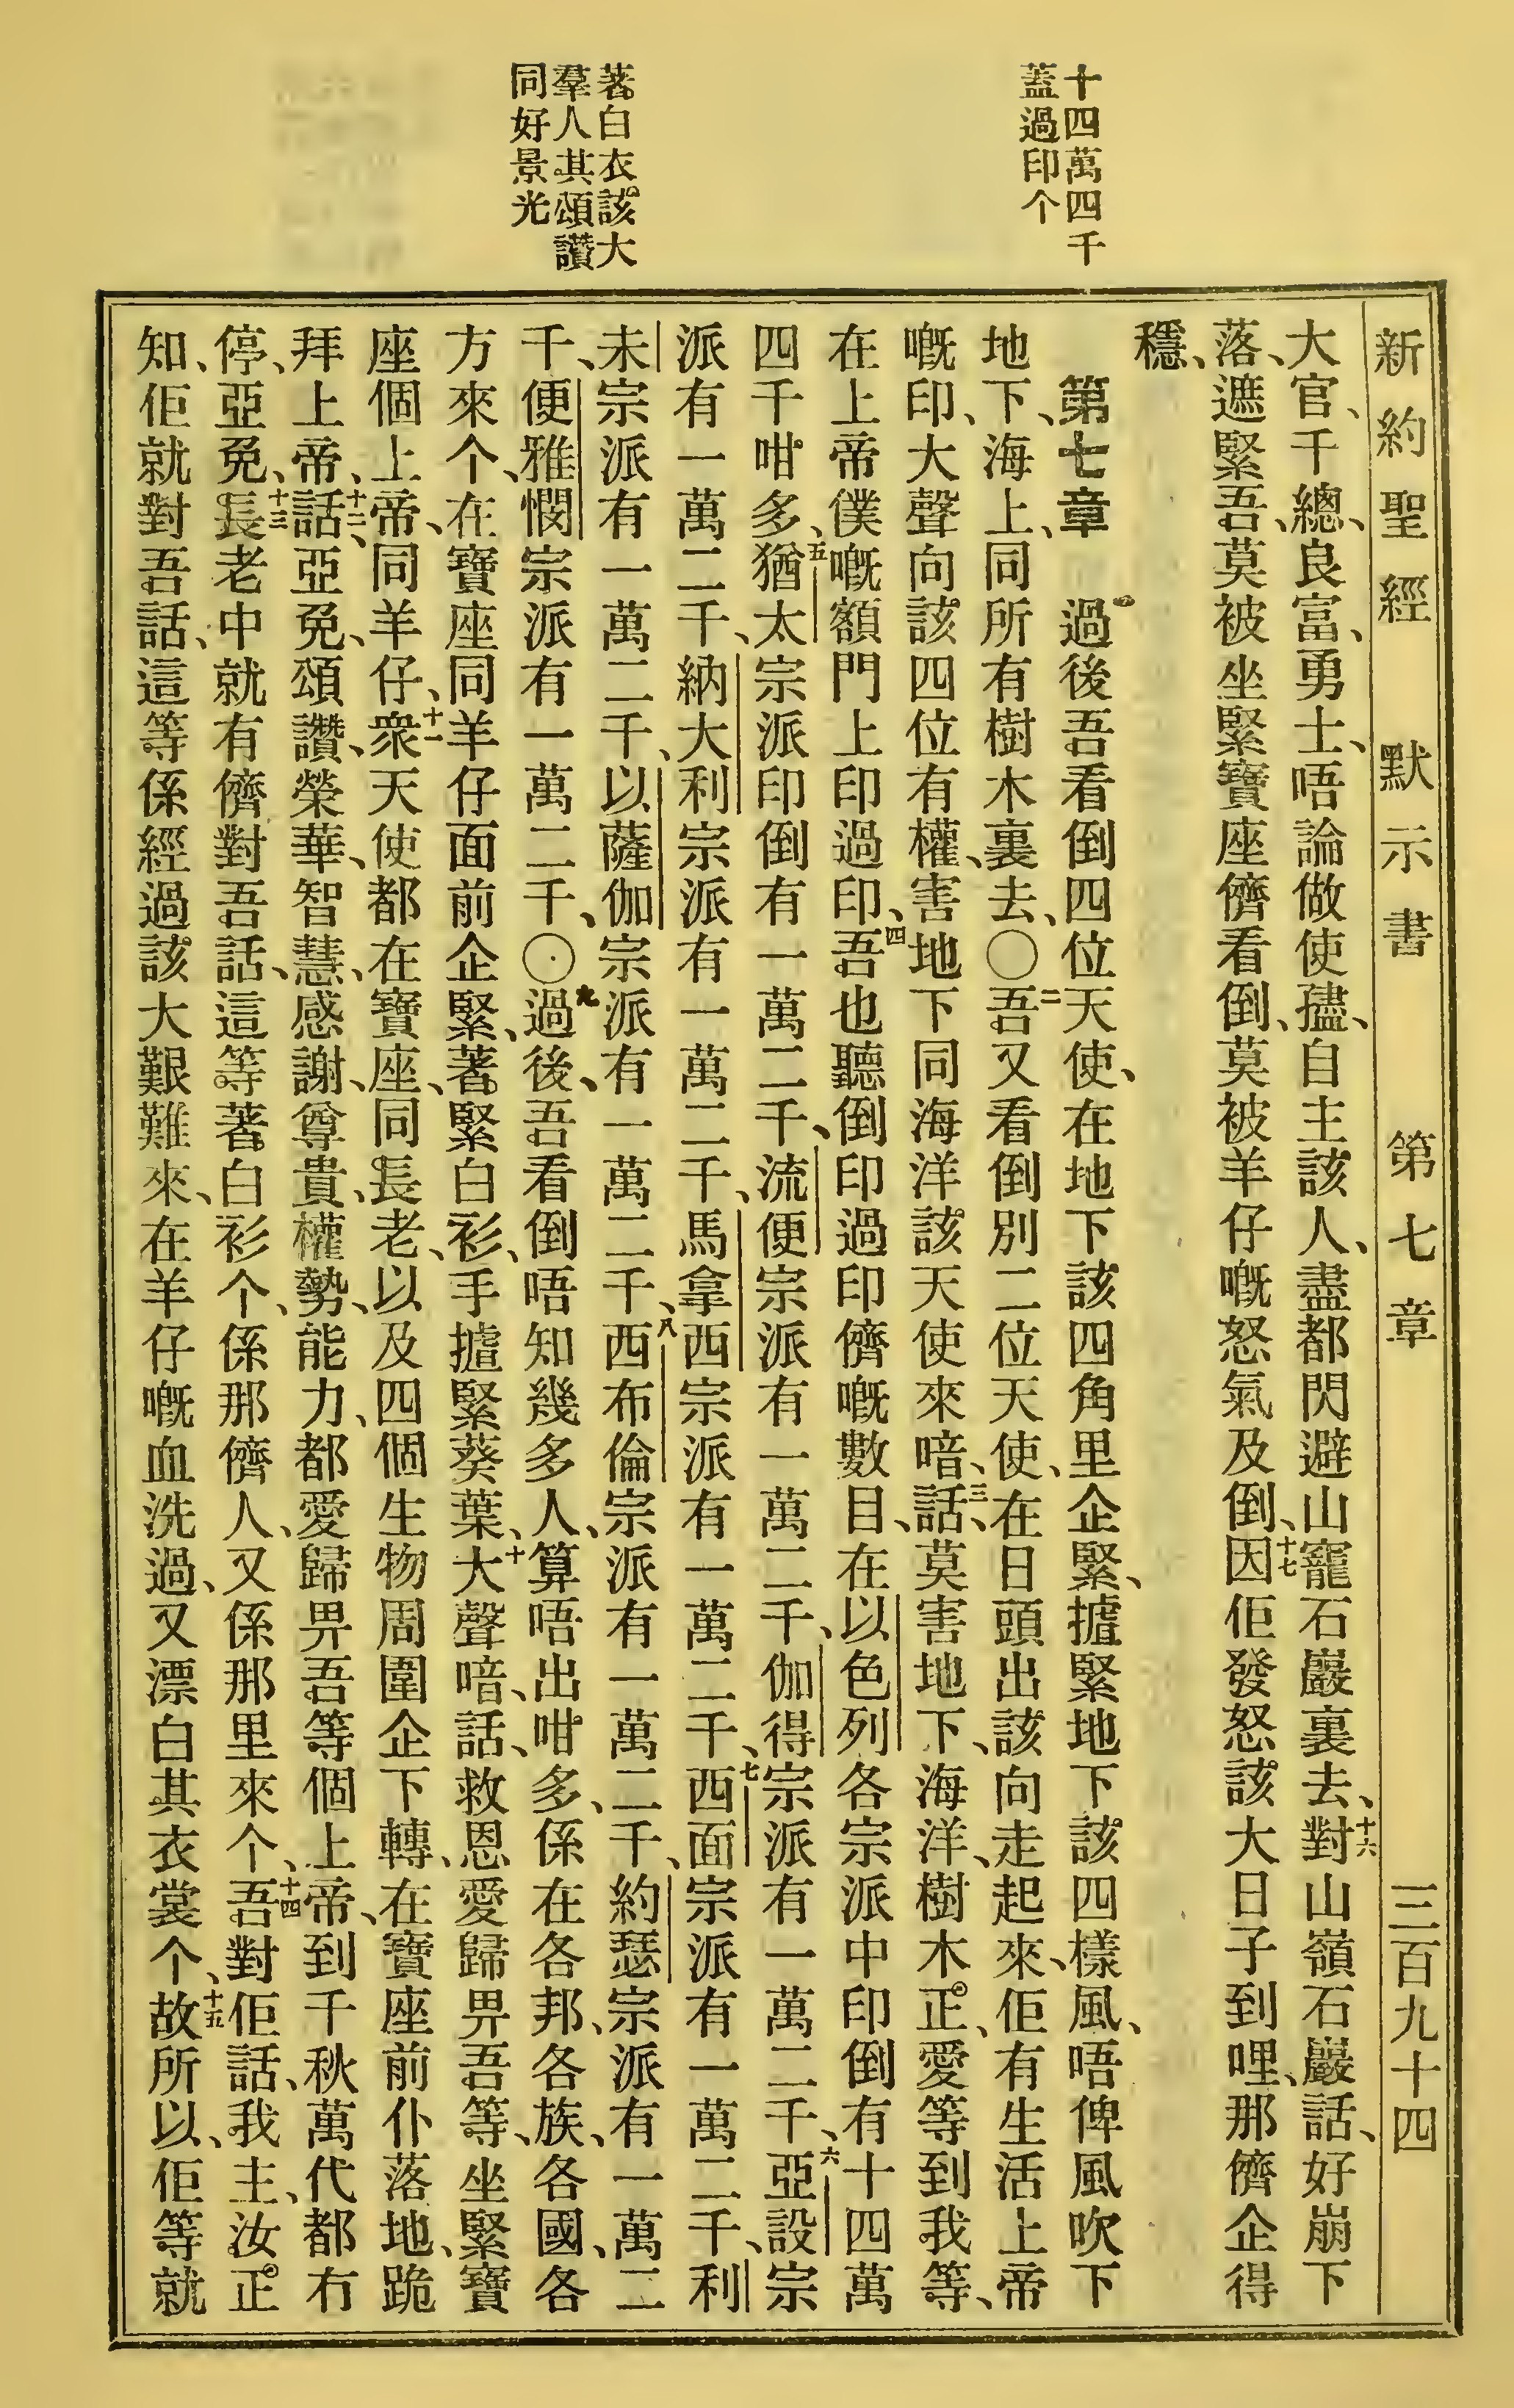 新約聖經 默示書 第七章 三百九十四
十四萬四千
蓋過印个
著白衣該大
羣人其頌讚
同好景光
大官、千總、良富、勇士、唔論做使𡥧、自主該人、盡都閃避山寵石巖裏去、十六對山嶺石巖話、好崩下
落、遮緊吾、莫被坐緊寶座儕看倒、莫被羊仔嘅怒氣及倒、十七因佢發怒該大日子到哩、那儕企得
穩、
第七章 過後吾看倒四位天使、在地下該四角里企緊、㨿緊地下該四樣風、唔俾風吹下
地下、海上、同所有樹木裏去、〇二吾又看倒別二位天使、在日頭出該向走起來、佢有生活上帝
嘅印、大聲向該四位有權、害地下同海洋該天使來喑、三話、莫害地下、海洋、樹木、正愛等到我等、
在上帝僕嘅額門上印過印、四吾也聽倒印過印儕嘅數目、在以色列各宗派中印倒有十四萬
四千咁多、五猶太宗派印倒有一萬二千、流便宗派有一萬二千、伽得宗派有一萬二千、六亞設宗
派有一萬二千、納大利宗派有一萬二千、馬拿西宗派有一萬二千、七西面宗派有一萬二千、利
未宗派有一萬二千、以薩伽宗派有一萬二千、八西布倫宗派有一萬二千、約瑟宗派有一萬二
千、便雅憫宗派有一萬二千、〇九過後、吾看倒唔知幾多人、算唔出咁多、係在各邦、各族、各國、各
方來个、在寶座同羊仔面前企緊、著緊白衫、手㨿緊葵葉、十大聲喑、話、救恩愛歸畀吾等、坐緊寶
座個上帝、同羊仔、十一衆天使都在寶座、同長老、以及四個生物周圍企下轉、在寶座前仆落地、跪
拜上帝、十二話、亞免、頌讚、榮華、智慧、感謝、尊貴、權勢、能力、都愛歸畀吾等個上帝、到千秋萬代都冇
停、亞免、十三長老中就有儕對吾話、這等著白衫个、係那儕人、又係那里來个、十四吾對佢話、我主、汝正
知、佢就對吾話、這等係經過該大艱難來、在羊仔嘅血洗過、又漂白其衣裳个、十五故所以、佢等就